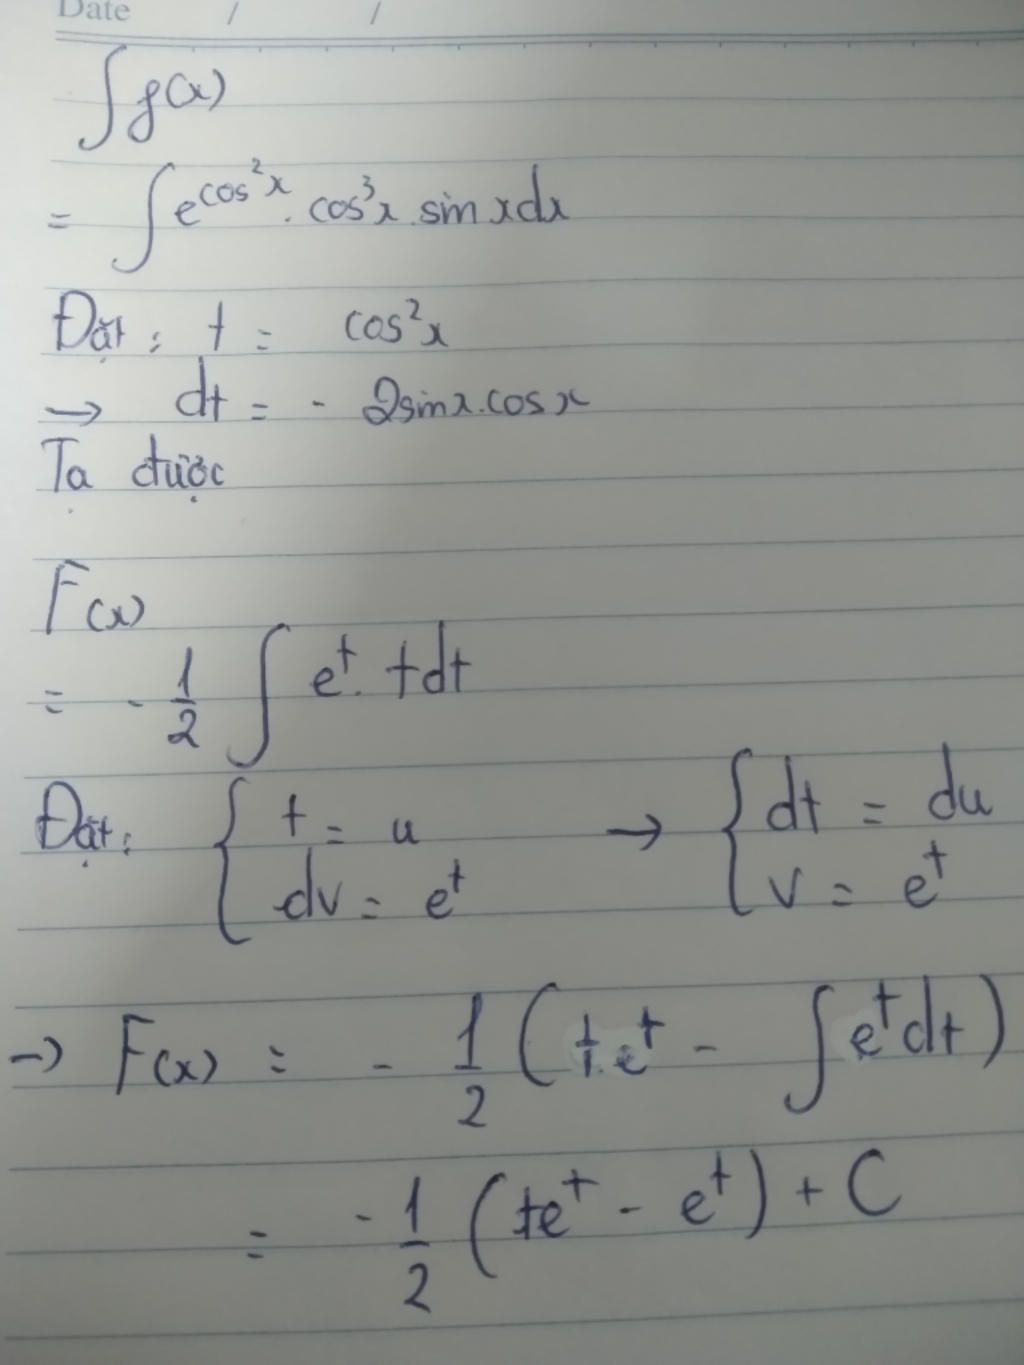 Date / /
∫f(x)
= ∫e^cos²x . cos³x . sin x dx
Đặt: t = cos²x
→ dt = - 2sinx.cosx
Ta được
F(x)
= - 1/2 ∫ e^t . t dt
Đặt: { t = u → { dt = du
dv = e^t v = e^t
→ F(x) = - 1/2 ( t.e^t - ∫e^t dt )
= - 1/2 ( te^t - e^t ) + C